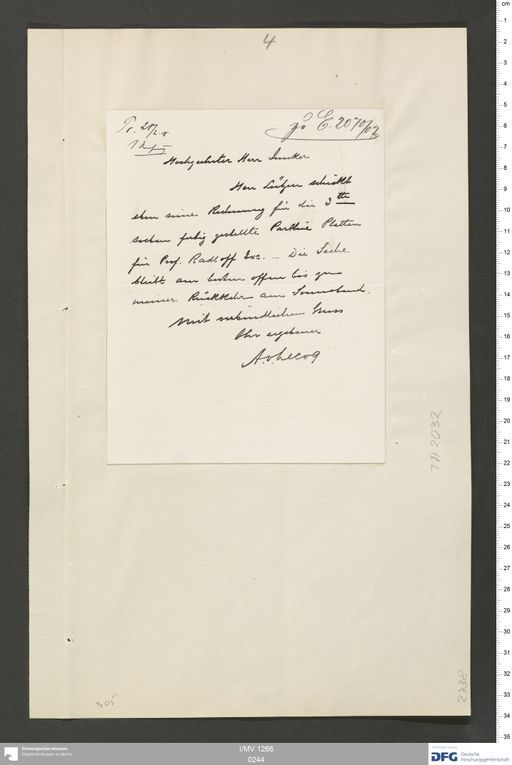 4
Pr. 20/2. 8
zu E. 2070/07
Hochgeehrter Herr Junker
Herr Lützen schickt
eben seine Rechnung für die 3te
soeben fertig gestellte Parthie Platten
für Prof. Radloff Exc. – Die Sache
bleibt am besten offen bis zu
meiner Rückkehr am Sonnabend
Mit verbindlichem Gruss
Ihr ergebener
A.v.leCoq
TA 2032
2238
305
Ethnologisches Museum
Staatliche Museen zu Berlin
I/MV 1266
0244
DFG Deutsche
Forschungsgemeinschaft
cm
1
2
3
4
5
6
7
8
9
10
11
12
13
14
15
16
17
18
19
20
21
22
23
24
25
26
27
28
29
30
31
32
33
34
35